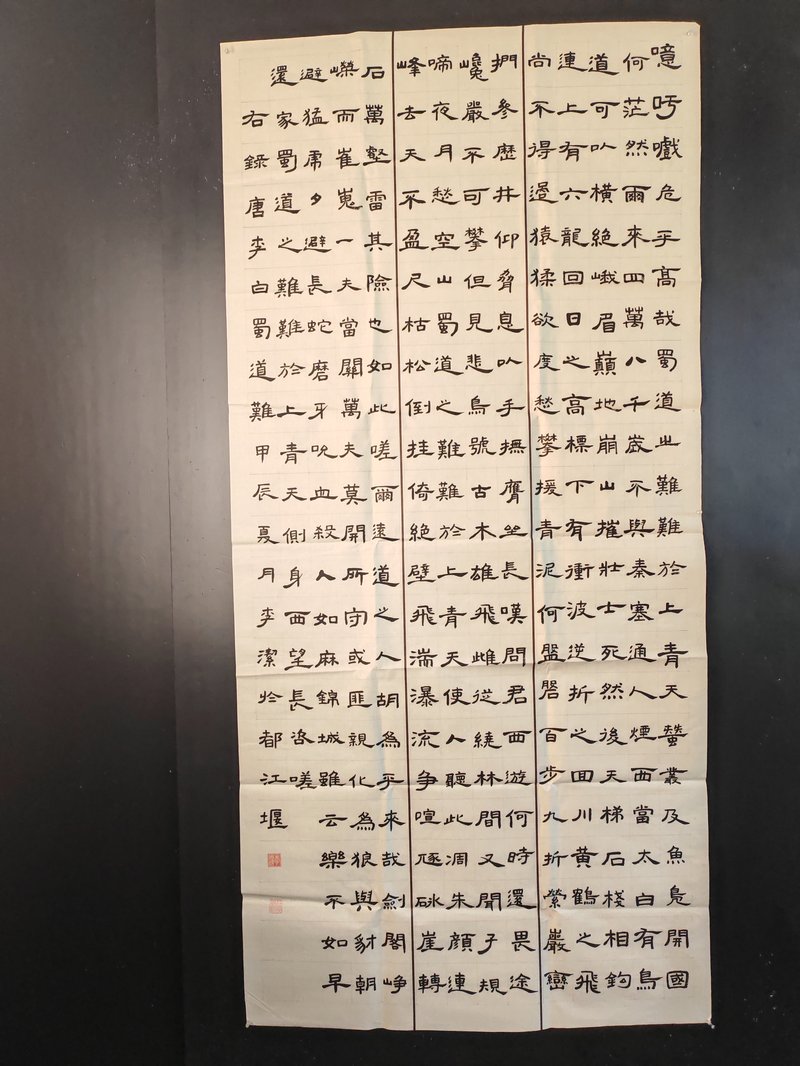 噫吁嚱危乎高哉蜀道之難難於上青天蠶叢及魚鳧開國
何茫然爾來四萬八千歲不與秦塞通人煙西當太白有鳥
道可以橫絕峨眉巔地崩山摧壯士死然後天梯石棧相鉤
連上有六龍回日之高標下有衝波逆折之回川黃鶴之飛
尚不得過猿猱欲度愁攀援青泥何盤盤百步九折縈巖巒
捫參歷井仰脅息以手撫膺坐長嘆問君西遊何時還畏途
巉巖不可攀但見悲鳥號古木雄飛雌從繞林間又聞子規
啼夜月愁空山蜀道之難難於上青天使人聽此凋朱顏連
峰去天不盈尺枯松倒挂倚絕壁飛湍瀑流爭喧豗砯崖轉
石萬壑雷其險也如此嗟爾遠道之人胡為乎來哉劍閣崢
嶸而崔嵬一夫當關萬夫莫開所守或匪親化為狼與豺朝
避猛虎夕避長蛇磨牙吮血殺人如麻錦城雖云樂不如早
還家蜀道之難難於上青天側身西望長咨嗟
右錄唐李白蜀道難甲辰夏月李潔於都江堰